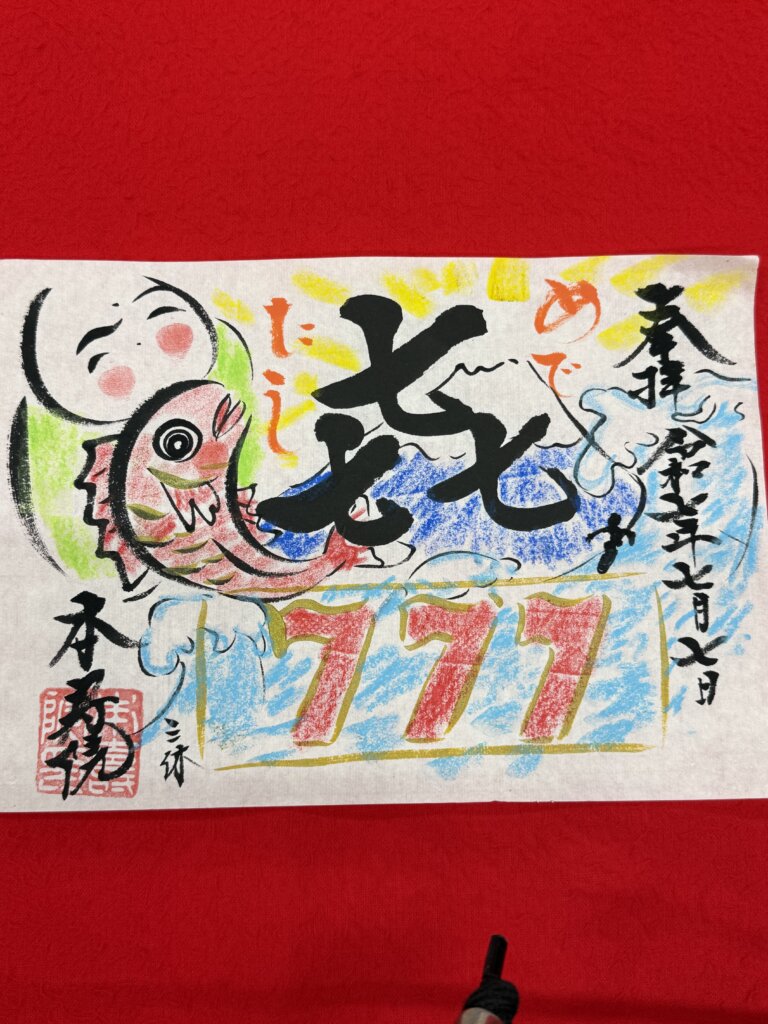 奉拝
令和七年七月七日
めで
たし
㐂
す
777
三休
本寿院